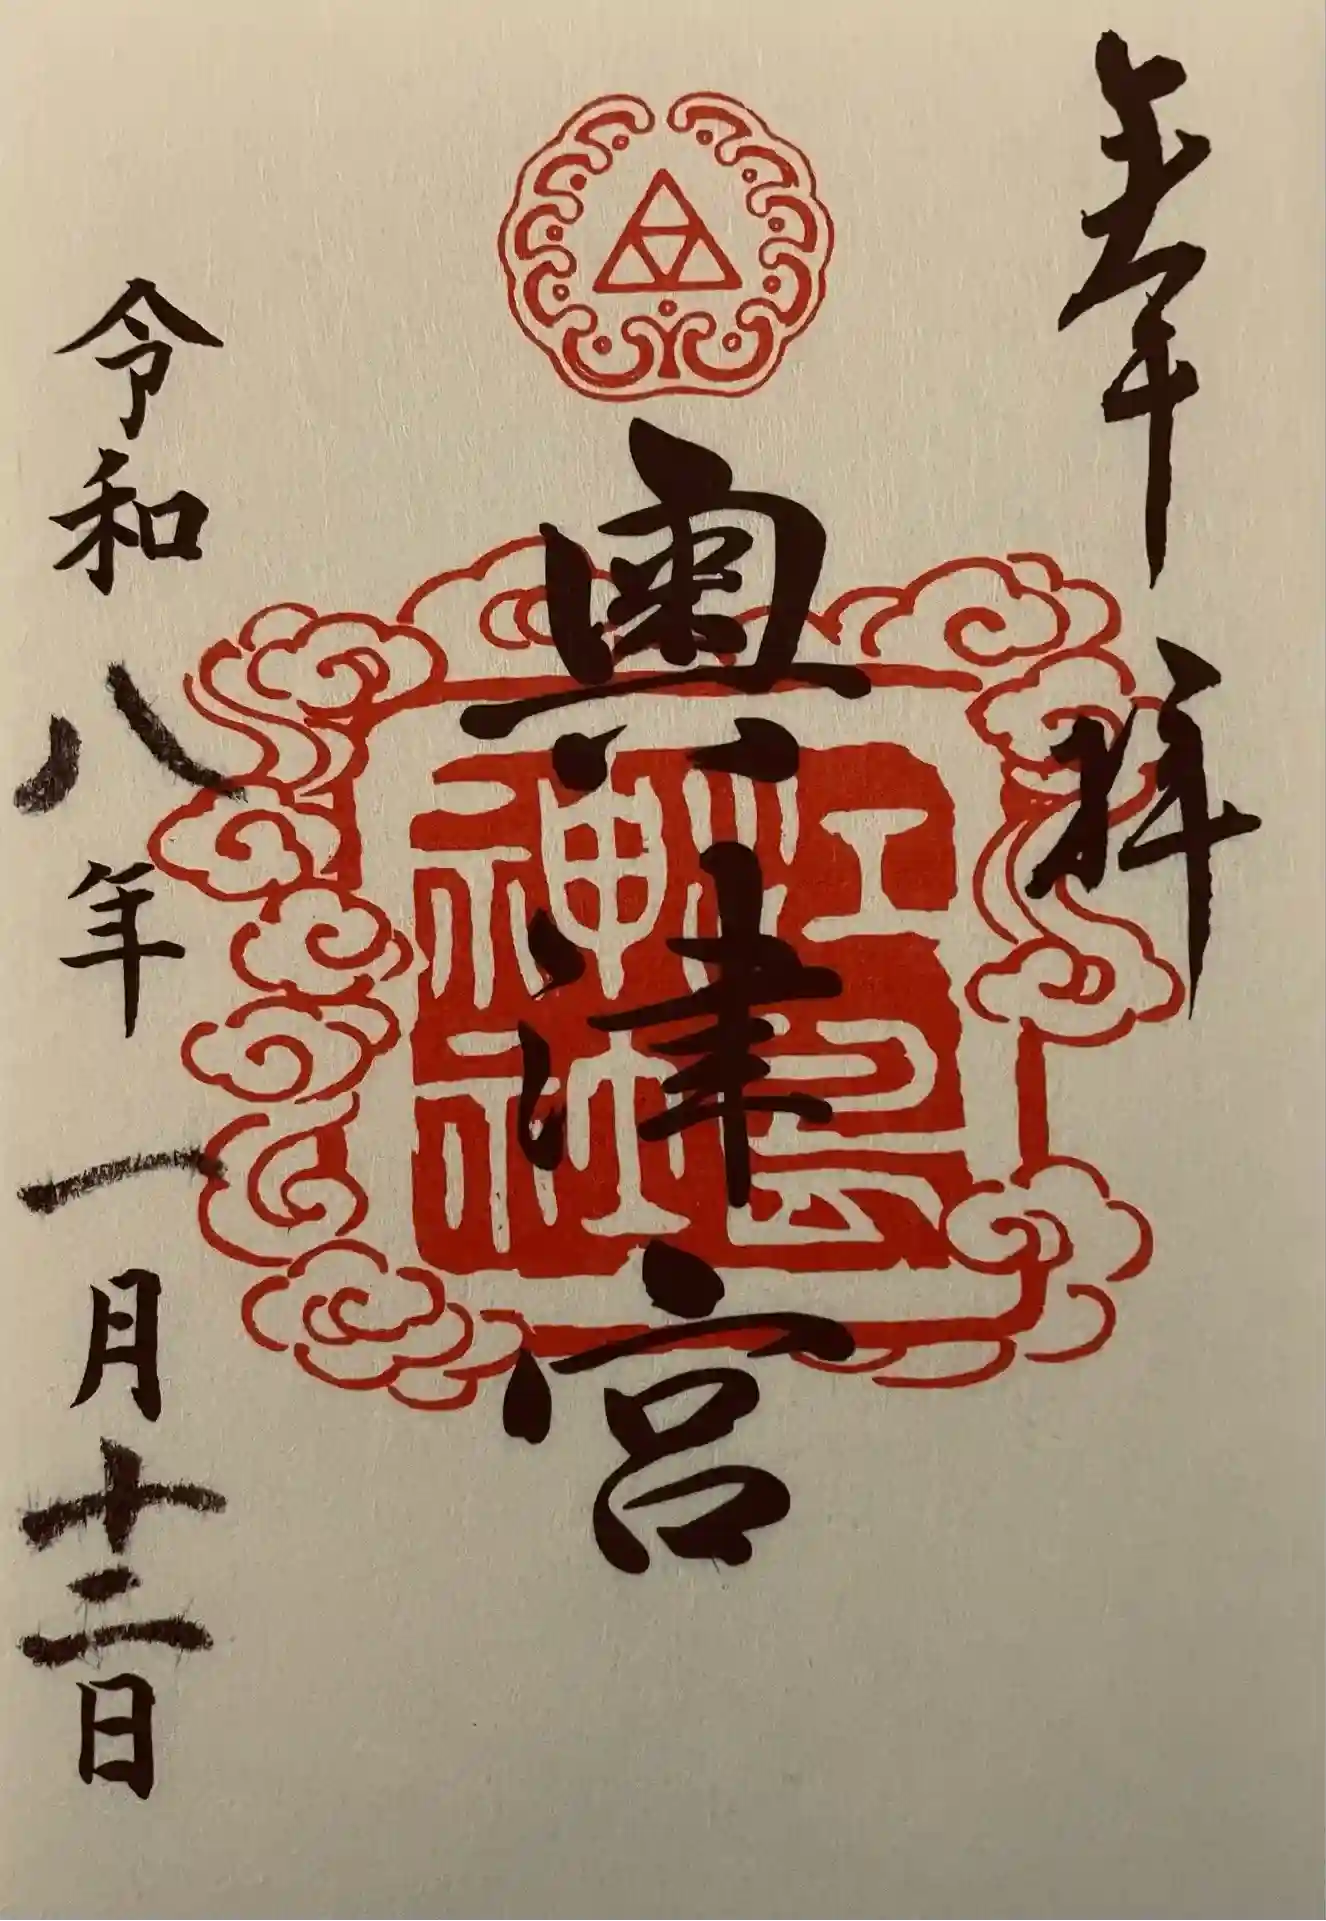 奉拝
奧津宮
江島神社
令和八年一月十二日